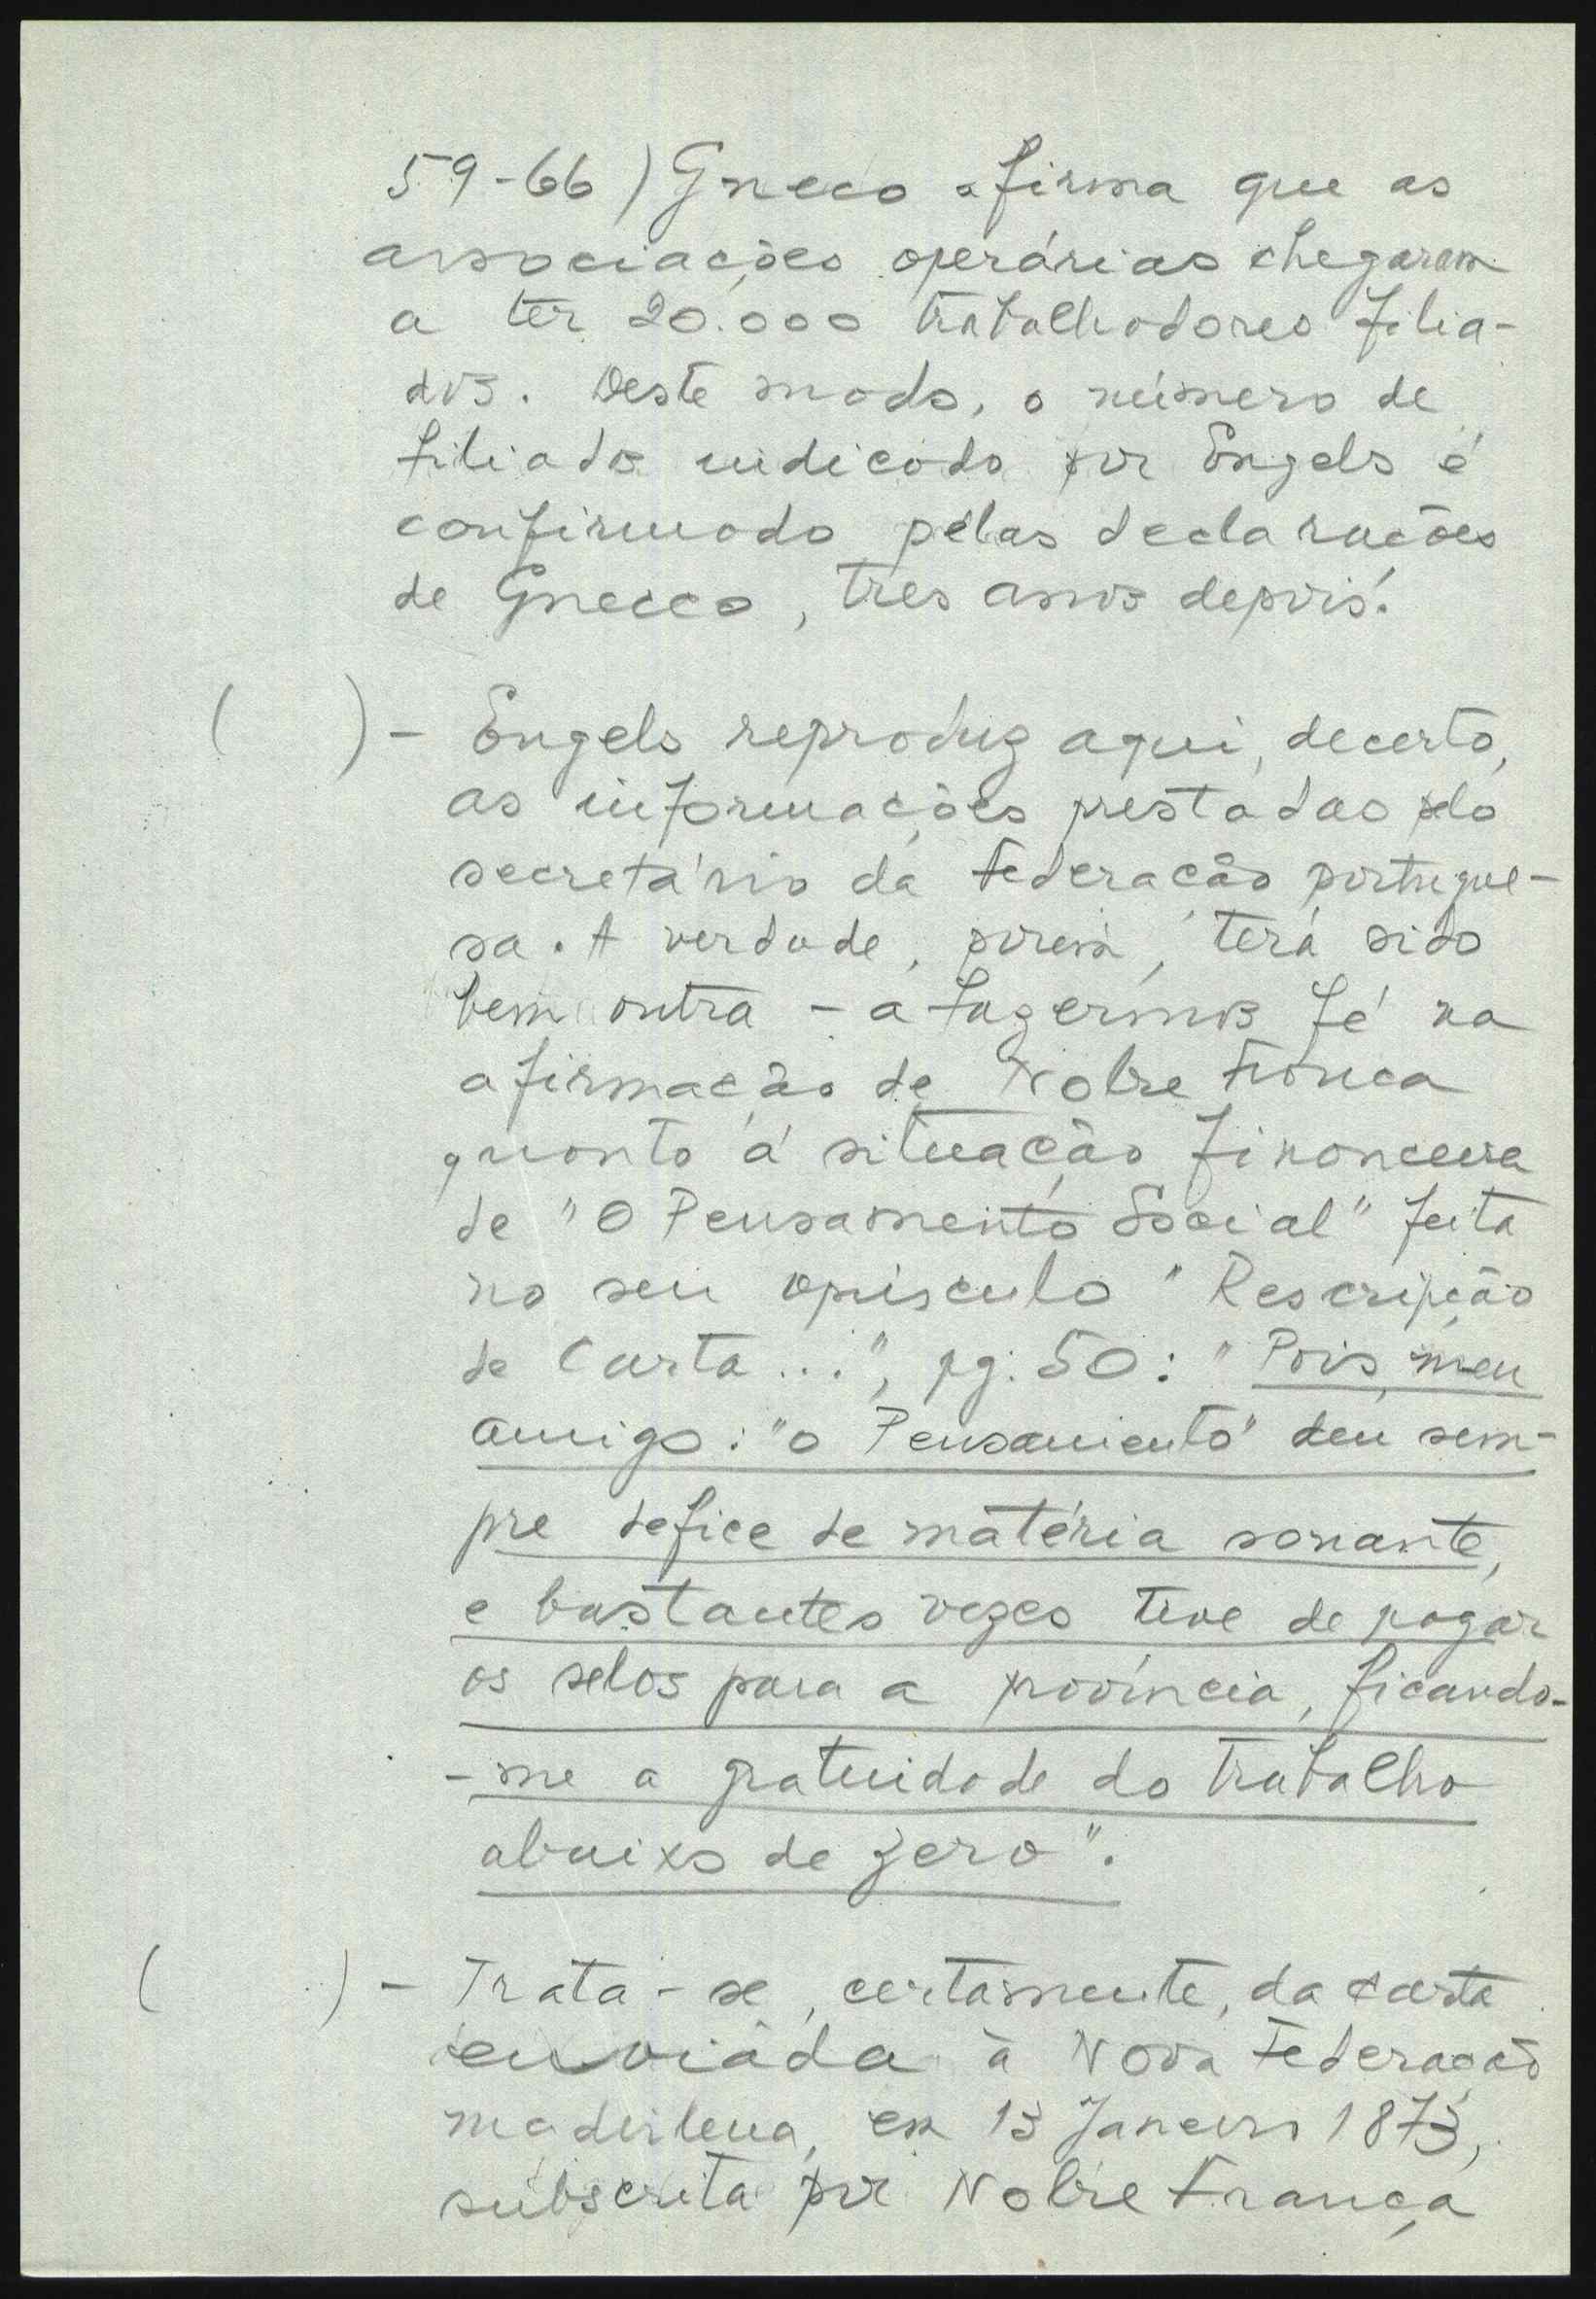 59-66) Gneco afirma que as
associações operárias chegaram
a ter 20.000 trabalhadores filia-
dos. Deste modo, o número de
filiados indicado por Engels é
confirmado pelas declarações
de Gnecco, tres anos depois.
( ) - Engels reproduz aqui, decerto,
as informações prestadas pelo
secretário da Federação portugue-
sa. A verdade, porém, terá sido
bem outra - a fazermos fé na
afirmação de Nobre França
quanto á situação financeira
de "O Pensamento Social" feita
no seu opúsculo "Rescripção
de Carta...", pg. 50: "Pois, meu
amigo: "o Pensamento" deu sem-
pre defice de matéria sonante,
e bastantes vezes tive de pagar
os selos para a província, ficando-
-me a gratuidade do trabalho
abaixo de zero".
( ) - Trata-se, certamente, da carta
enviáda à Nova Federação
madrilena, em 13 Janeiro 1873,
subscrita por Nobre França